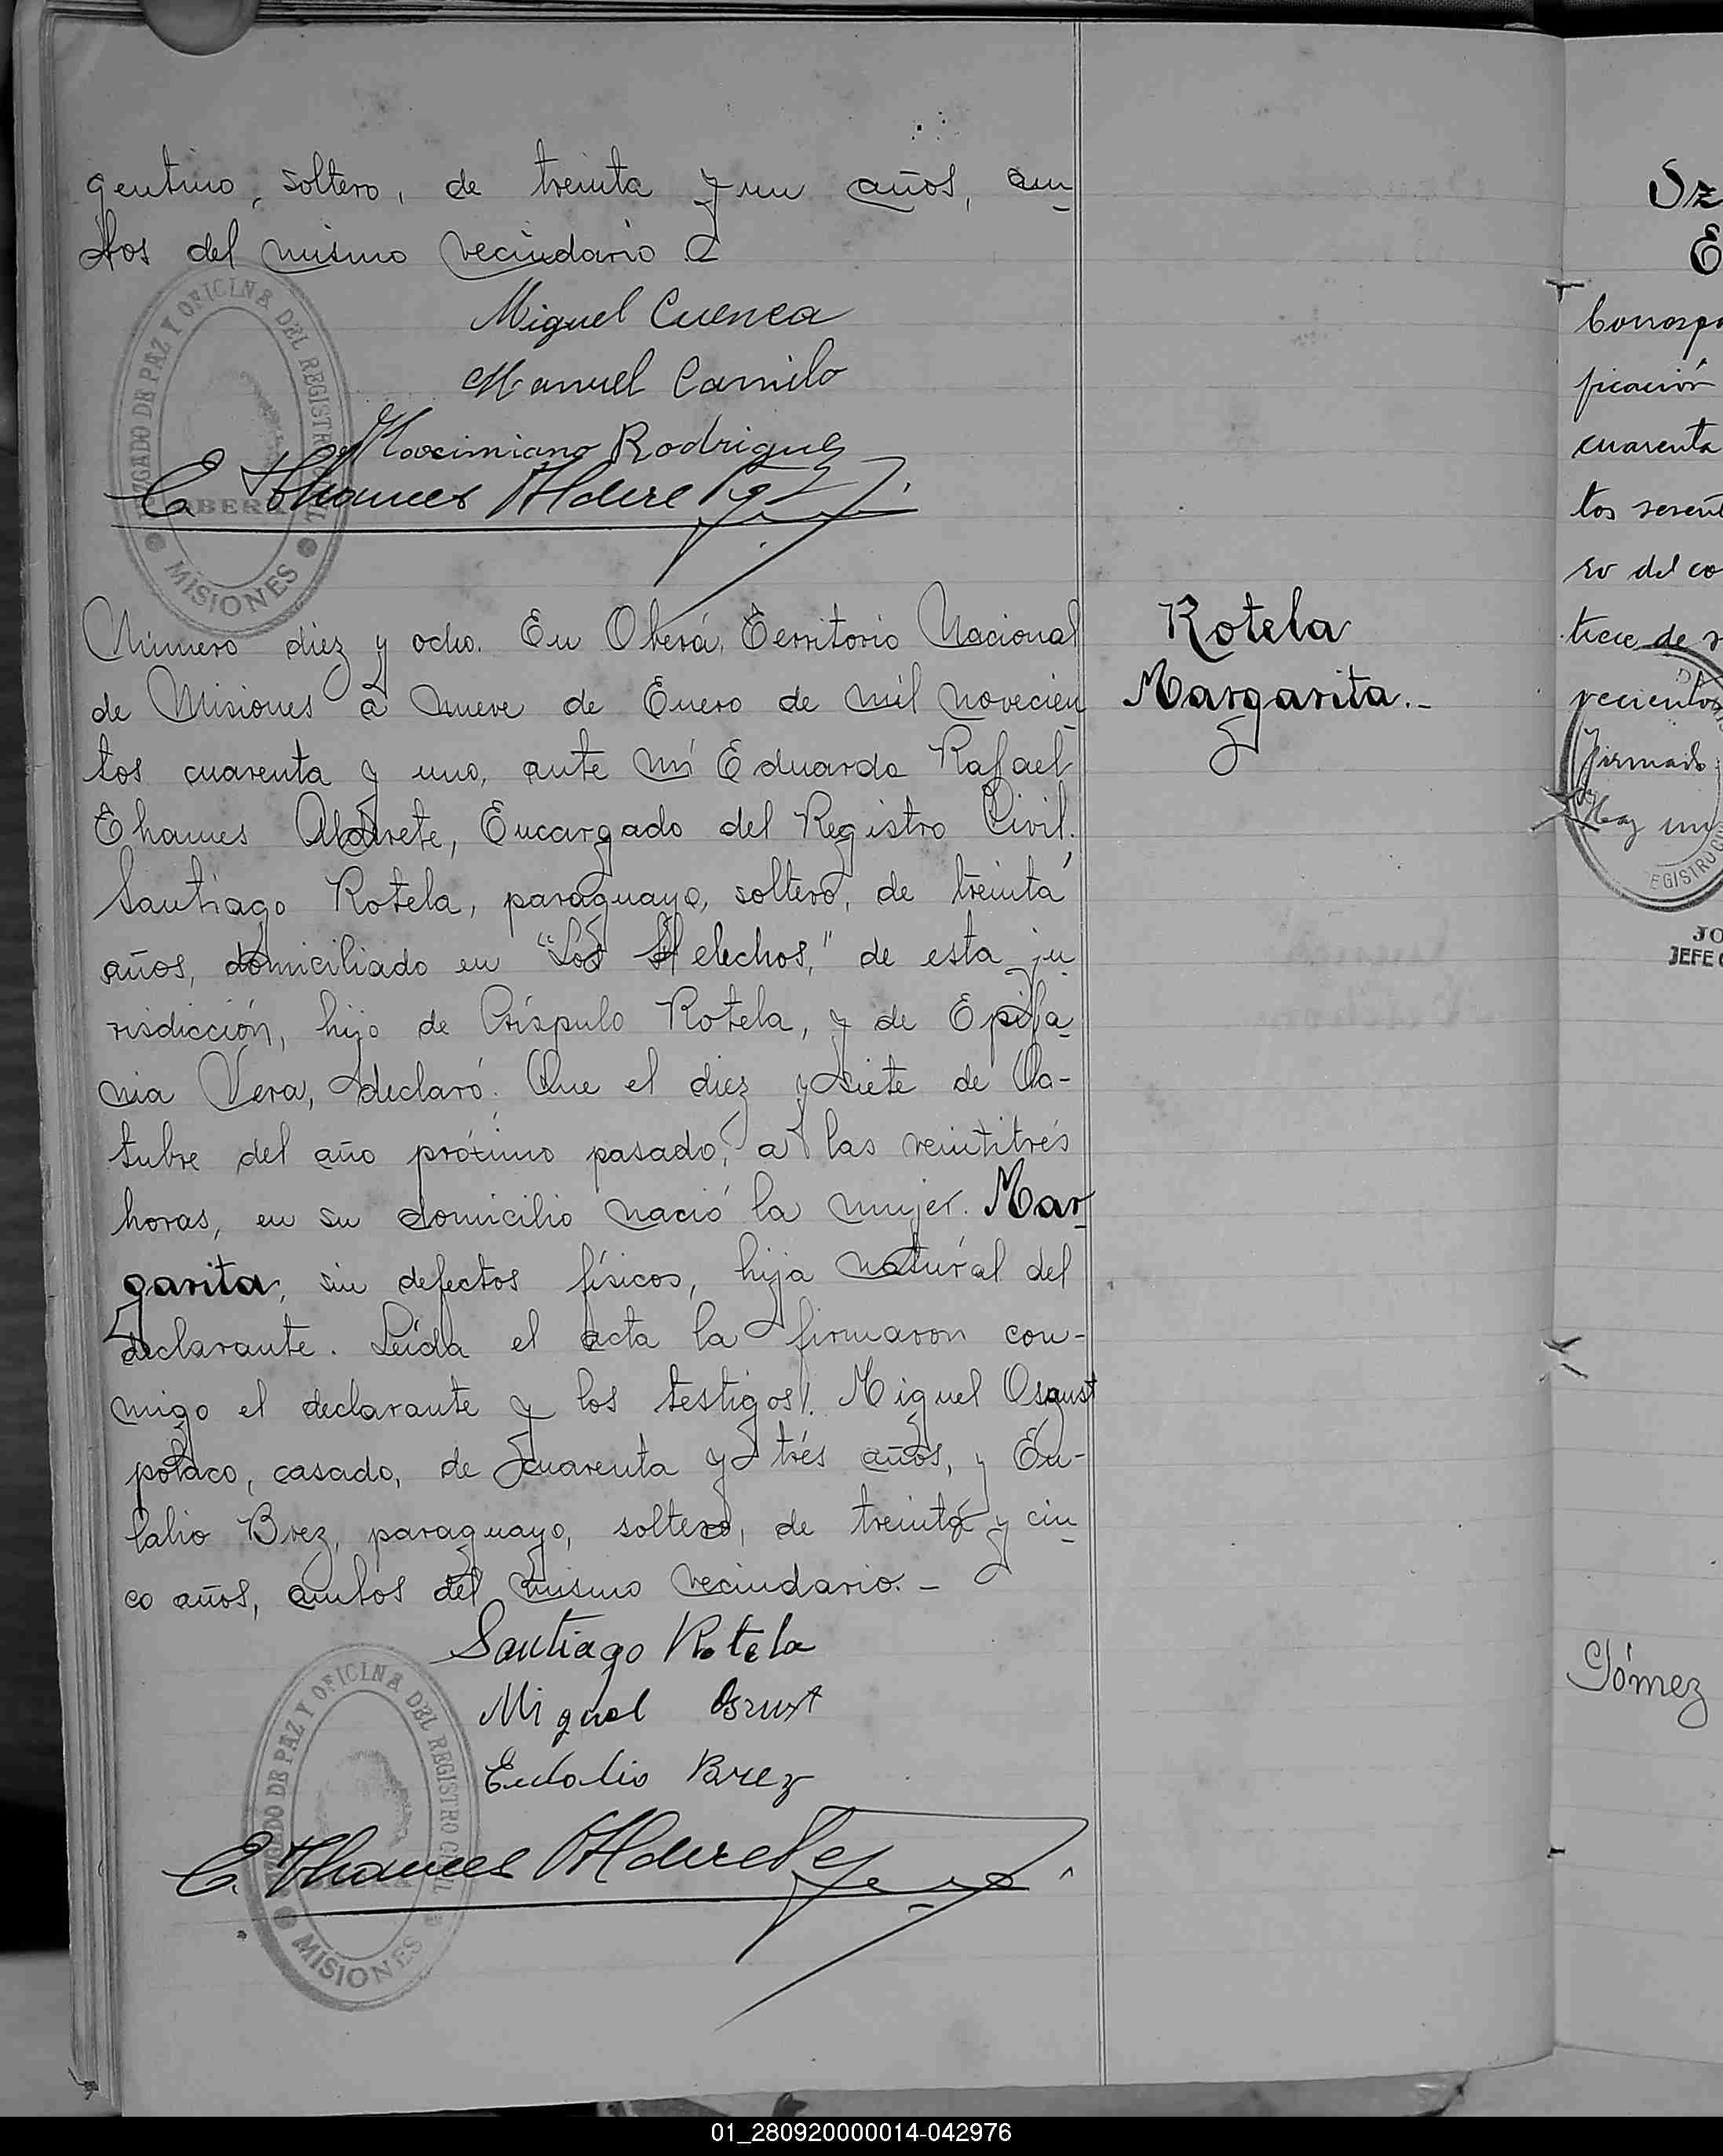 gentino, soltero, de treinta y un años, am
bos del mismo vecindario
Miguel Cuenca
Manuel Camilo
Maximiano Rodriguez
E. Thames Alderete
JUZGADO DE PAZ Y OFICINA DEL REGISTRO
OBERA
MISIONES
Número diez y ocho. En Oberá, Territorio Nacional
de Misiones a nueve de Enero de mil novecien
tos cuarenta y uno, ante mí Eduardo Rafael
Thames Alderete, Encargado del Registro Civil.
Santiago Rotela, paraguayo, soltero, de treinta
años, domiciliado en "Los Helechos," de esta ju
risdicción, hijo de Críspulo Rotela, y de Epifa-
nia Vera, declaró: Que el diez y siete de Oc-
tubre del año próximo pasado, a las veintitrés
horas, en su domicilio nació la mujer. Mar
garita, sin defectos físicos, hija natural del
declarante. Leída el acta la firmaron con-
migo el declarante y los testigos: Miguel Osrust
polaco, casado, de cuarenta y trés años, y Eu-
lalio Brez, paraguayo, soltero, de treinta y cin
co años, ambos del mismo vecindario.-
Santiago Rotela
Miguel Osrust
Eulalio Brez
E. Thames Alderete
JUZGADO DE PAZ Y OFICINA DEL REGISTRO CIVIL
MISIONES
Rotela
Margarita.-
Sz
E
Corresp
ficación
cuarenta
tos
ro del co
trece de
Firmado
Hay un
REGISTRO
JO
JEFE
Gómez
01_280920000014-042976